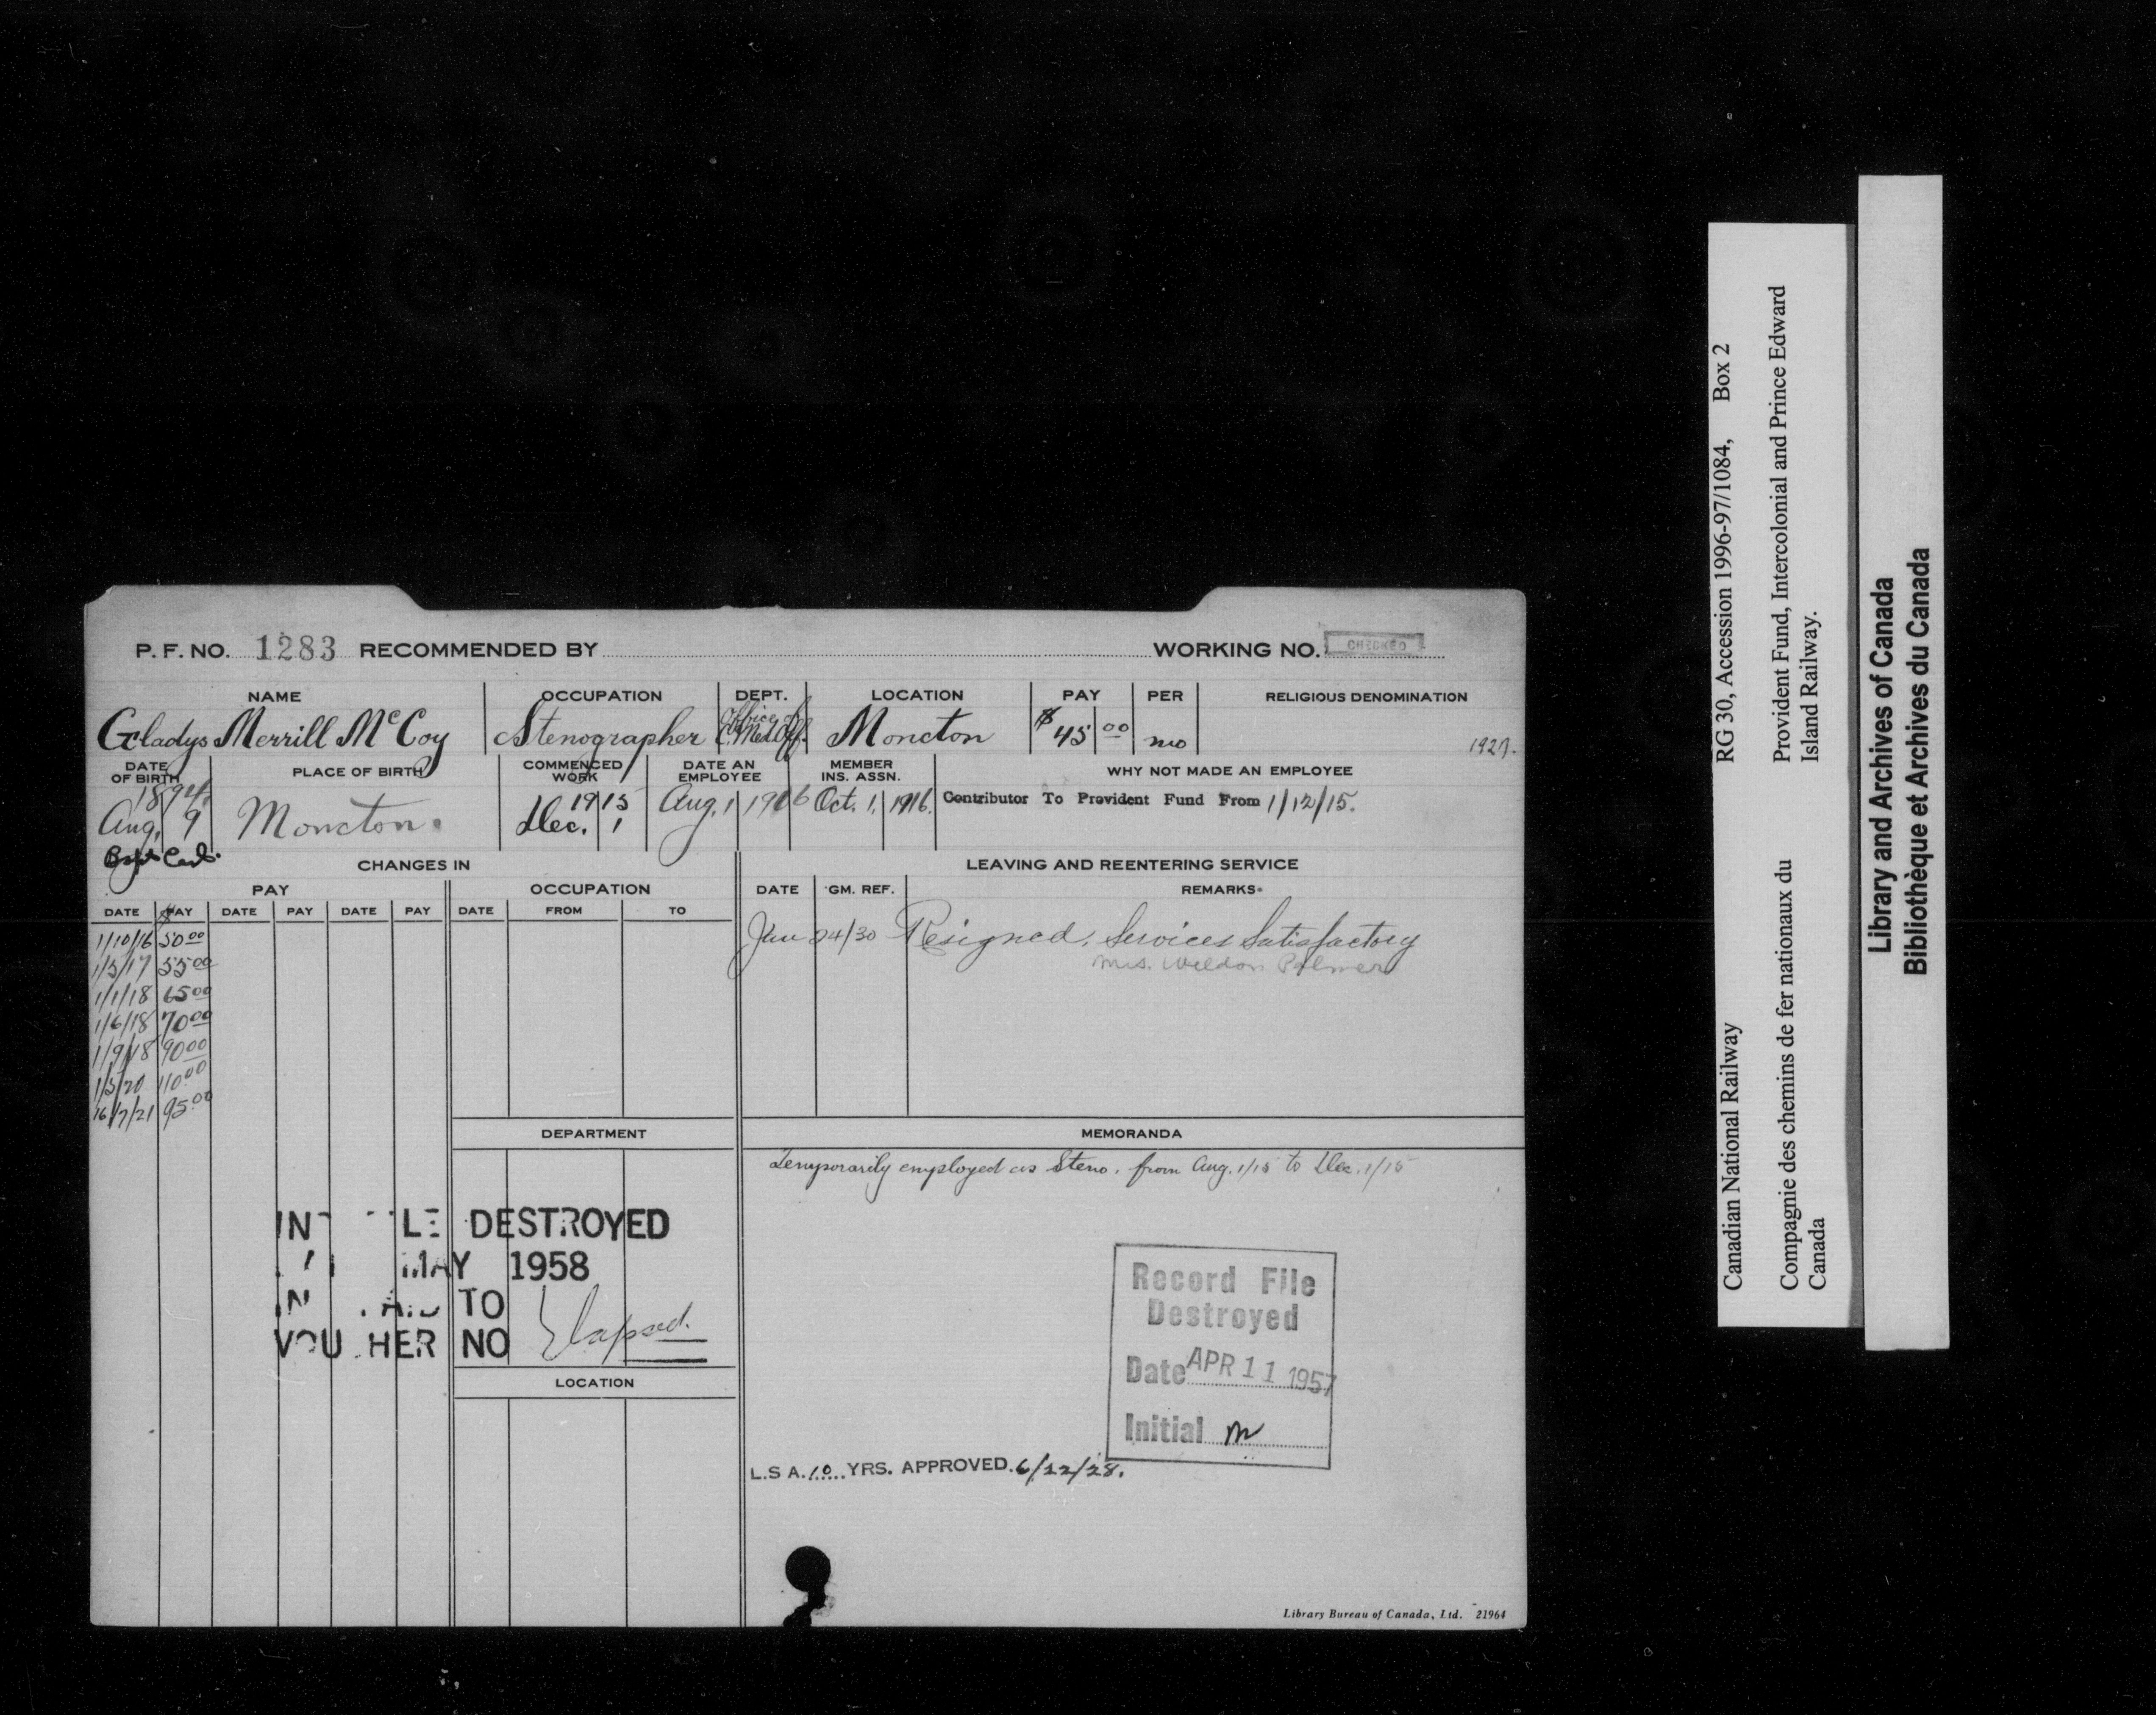 P. F. NO. 1283 RECOMMENDED BY WORKING NO. CHECKED
NAME OCCUPATION DEPT. LOCATION PAY PER RELIGIOUS DENOMINATION
Gladys Merrill McCoy Stenographer Office of C. Med. Off. Moncton $45 00 mo
1927.
DATE OF BIRTH PLACE OF BIRTH COMMENCED WORK DATE AN EMPLOYEE MEMBER INS. ASSN. WHY NOT MADE AN EMPLOYEE
1894 Aug. 9 Moncton. 1915 Dec. 1 Aug. 1 1916 Oct. 1, 1916. Contributor To Provident Fund From 1/12/15.
CHANGES IN LEAVING AND REENTERING SERVICE
PAY OCCUPATION DATE GM. REF. REMARKS
DATE PAY DATE PAY DATE PAY DATE FROM TO
1/10/16 $50 00
1/5/17 55 00
1/1/18 65 00
1/6/18 70 00
1/9/18 90 00
1/5/20 110 00
16/7/21 95 00
Jan 24/30 Resigned. Services Satisfactory
Mrs. Weldon Palmer
DEPARTMENT MEMORANDA
Temporarily employed as Steno. from Aug. 1/15 to Dec. 1/15
DESTROYED
MAY 1958
TO
NO Elapsed.
LOCATION
Record File
Destroyed
Date APR 11 1957
Initial m
L.S A. 10 YRS. APPROVED. 6/22/28.
Library Bureau of Canada, Ltd. 21964
Canadian National Railway RG 30, Accession 1996-97/1084, Box 2
Compagnie des chemins de fer nationaux du Canada
Provident Fund, Intercolonial and Prince Edward Island Railway.
Library and Archives of Canada
Bibliothèque et Archives du Canada